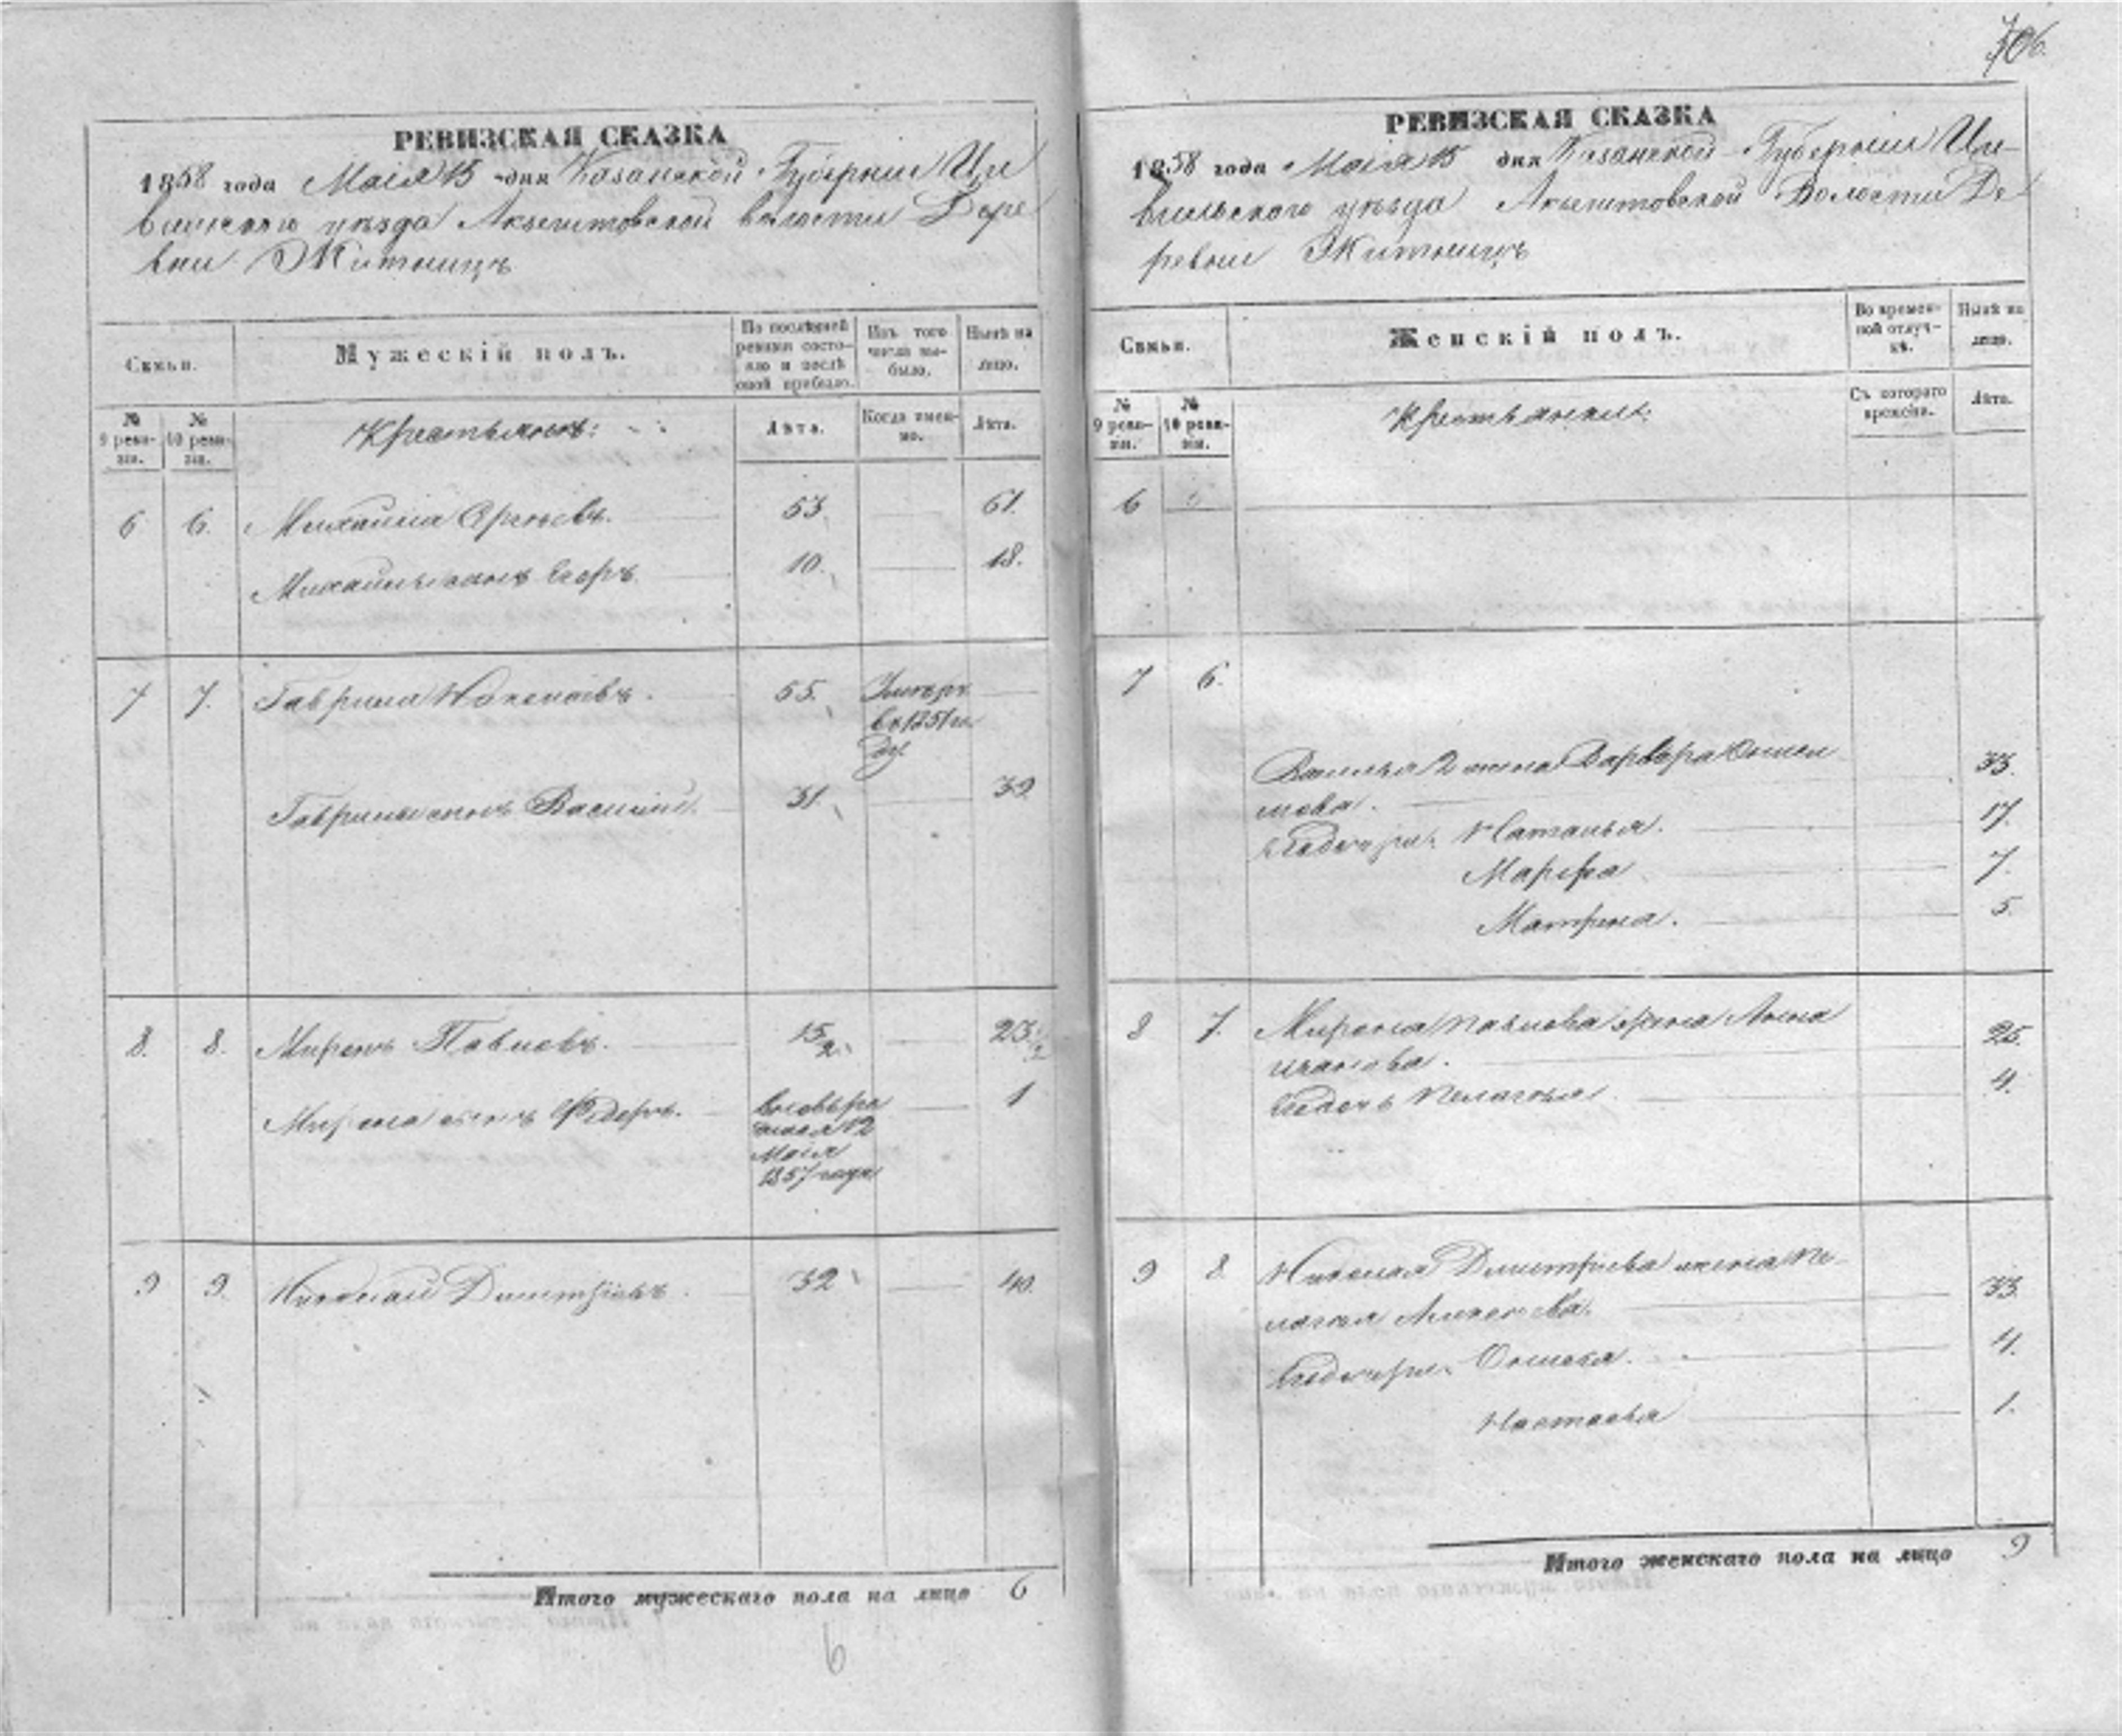 706.
РЕВИЗСКАЯ СКАЗКА
1858 года Маія 15 дня Казанской Губерніи Ци
вильскаго уѣзда Акзегитовской волости Дере
вни Житницъ
Семьи.
Мужескій полъ.
По послѣдней
ревизіи состо-
яло и послѣ
оной прибыло.
Изъ того
числа вы-
было.
Нынѣ на
лицо.
№
9 реви-
зіи.
№
10 реви-
зіи.
Крестьянъ:
Лѣта.
Когда имен-
но.
Лѣта.
6 6. Михайла 53. 61.
Михайлы сынъ Егоръ. 10. 18.
7 7. Гаврила 55. Умеръ
въ 1851 го
ду.
Гаврилы сынъ Василій. 31. 39.
8. 8. Миронъ Павловъ. 15 1/2. 23 1/2
Мирона сынъ Ѳедоръ. 1
12
Маія
1857 года
9 9. Николай Дмитріевъ. 32 40.
Итого мужескаго пола на лицо 6
6
РЕВИЗСКАЯ СКАЗКА
1858 года Маія 15 дня Казанской Губерніи Ци-
вильскаго уѣзда Акзегитовской Волости Де
ревни Житницъ
Семьи.
Женскій полъ.
Во времен-
ной отлуч-
кѣ.
Нынѣ на
лицо.
№
9 реви-
зіи.
№
10 реви-
зіи.
Крестьянскій:
Съ котораго
времени.
Лѣта.
6
7 6.
Василья 2 жена Варвара
33.
Наталья. 17.
Марфа 7.
Матрена. 5.
8 7. Мирона Павлова жена Анна
Иванова. 25.
Пелагея. 4.
9 8. Николая Дмитріева жена Пе-
лагея 33.
4.
Настасья 1.
Итого женскаго пола на лицо 9